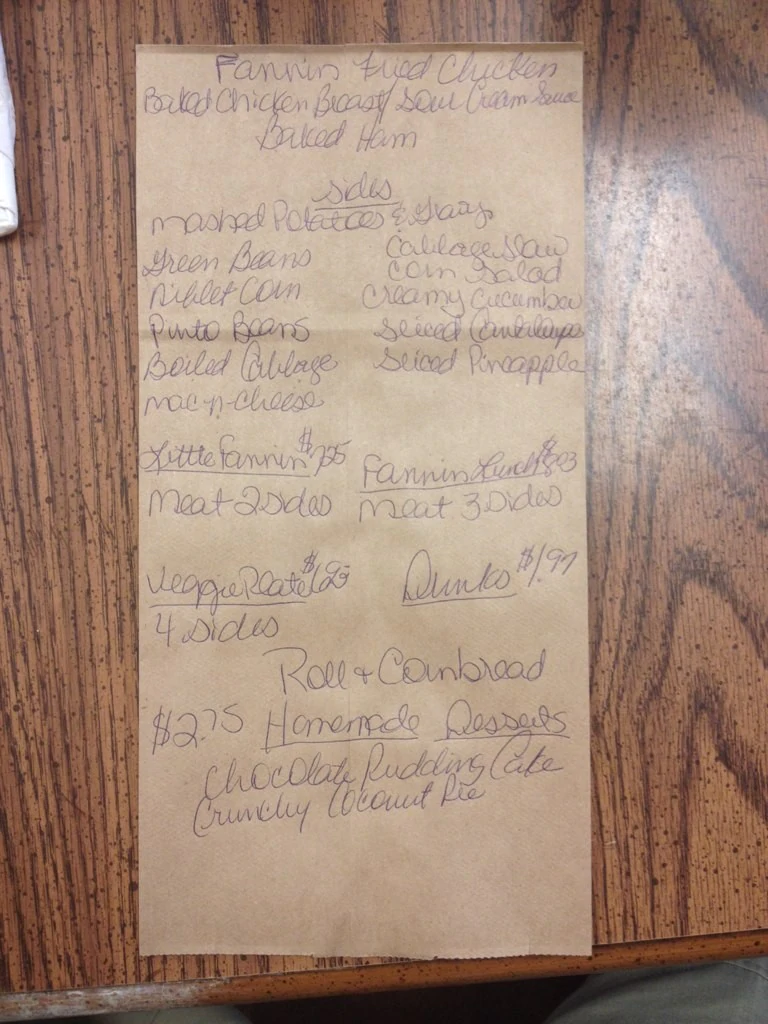 Fannin Fried Chicken
Baked Chicken Breast/Sour Cream Sauce
Baked Ham
Sides
Mashed Potatoes & Gravy
Green Beans
Niblet Corn
Pinto Beans
Boiled Cabbage
Mac-n-Cheese
Cabbage Slaw
Corn Salad
Creamy Cucumber
Sliced Cantaloupe
Sliced Pineapple
Little Fannin
Meat 2 Sides
Fannin Lunch
Meat 3 Sides
Veggie Plate
4 Sides
Drinks $1.97
Roll & Cornbread
$2.75 Homemade Desserts
Chocolate Pudding Cake
Crunchy Coconut Pie